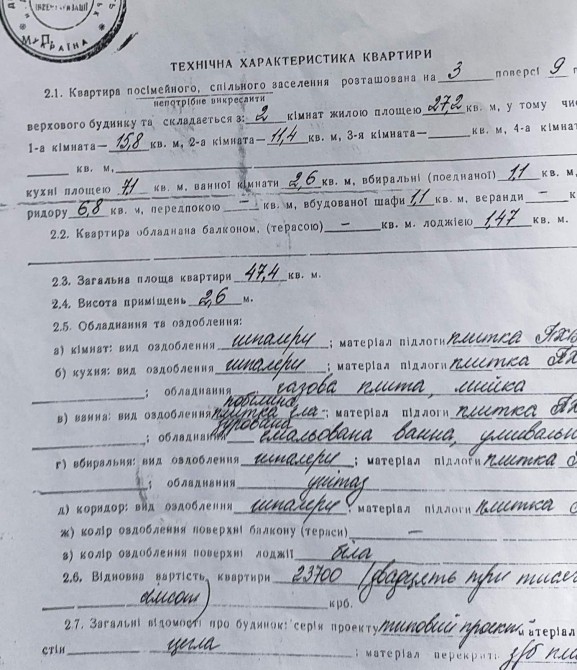 ІНВЕНТАРИЗАЦІЇ
М. П.
УКРАЇНА
ТЕХНІЧНА ХАРАКТЕРИСТИКА КВАРТИРИ
2.1. Квартира посімейного, спільного заселення розташована на 3 поверсі 9
непотрібне викреслити
верхового будинку та складається з: 2 кімнат жилою площею 27,2 кв. м, у тому
1-а кімната— 15,8 кв. м, 2-а кімната— 11,4 кв. м, 3-я кімната— кв. м, 4-а кімнат
кв. м,
кухні площею 7,1 кв. м, ванної кімнати 2,6 кв. м, вбиральні (поєднаної) 1,1 кв. м,
ридору 6,8 кв. м, передпокою — кв. м, вбудованої шафи 1,1 кв. м, веранди — к
2.2. Квартира обладнана балконом, (терасою) — кв. м. лоджією 1,47 кв. м.
2.3. Загальна площа квартири 47,4 кв. м.
2.4. Висота приміщень 2,6 м.
2.5. Обладнання та оздоблення:
а) кімнат: вид оздоблення шпалери ; матеріал підлоги плитка ПХВ
б) кухня: вид оздоблення шпалери ; матеріал підлоги плитка ПХ
; обладнання газова плита, мийка
побілка,
в) ванна: вид оздоблення плитка гла- ; матеріал підлоги плитка ПХ
зурована
; обладнання емальована ванна, умивальн
г) вбиральня: вид оздоблення шпалери ; матеріал підлоги плитка
; обладнання унітаз
д) коридор: вид оздоблення шпалери ; матеріал підлоги плитка
ж) колір оздоблення поверхні балкону (тераси) —
з) колір оздоблення поверхні лоджії біла
2.6. Відновна вартість квартири 23700 (двадцять три тисяч
сімсот) крб.
2.7. Загальні відомості про будинок: серія проекту типовий проект матеріал
стін цегла ; матеріал перекриття з/б